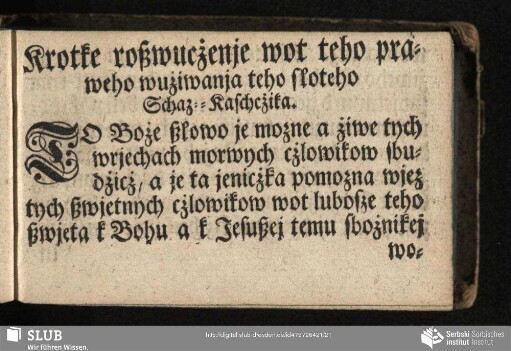 Krotke roßwucżenje wot teho pra-
weho wużiwanja teho sloteho
Schaz-- Kaschcżika.
TO Boże ßlowo je możne a żiwe tych
wrjechach morwych cżlowikow sbu-
dżicż, a je ta jenicżka pomożna wjez
tych ßwjetnych cżlowikow wot lubosże teho
ßwjeta k Bohu a k Jesußej temu sbożnikej
wo-
SLUB
Wir führen Wissen.
Serbski Sorbisches
institut Institut